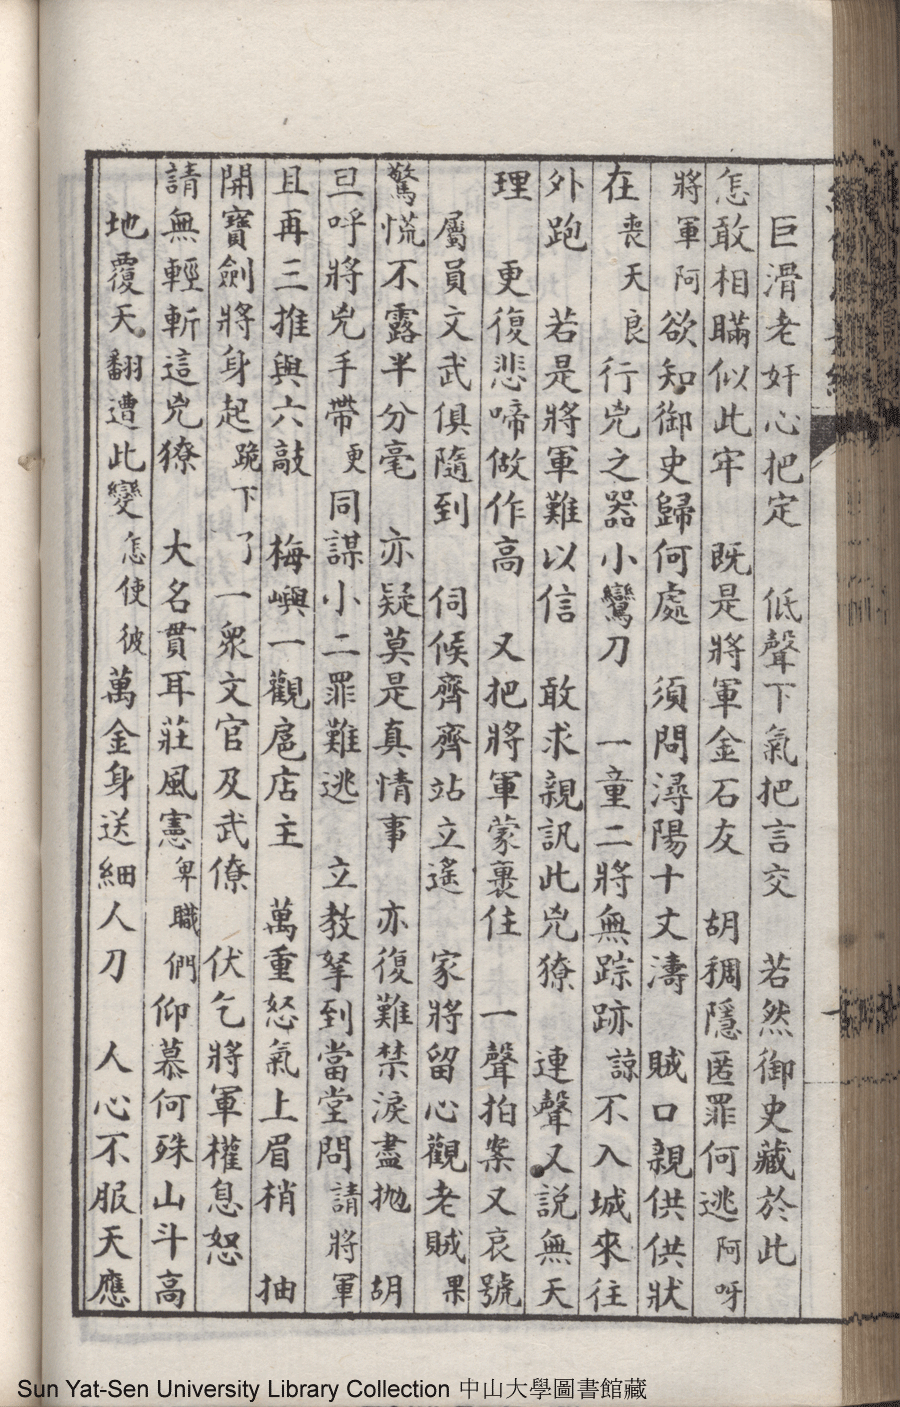 巨滑老奸心把定　低聲下氣把言交　若然御史藏於此
怎敢相瞞似此牢　既是將軍金石友　胡稠隱匿罪何逃阿呀
將軍阿欲知御史歸何處　須問潯陽十丈濤　賊口親供供狀
在喪天良行兇之器小鸞刀　一童二將無踪跡諒不入城來往
外跑　若是將軍難以信　敢求親訊此兇獠　連聲又説無天
理　更復悲啼做作高　又把將軍蒙裹住　一聲拍案又哀號
屬員文武俱隨到　伺候齊齊站立遙　家將留心觀老賊果
驚慌不露半分毫　亦疑莫是真情事　亦復難禁淚盡拋　胡
旦呼將兇手帶更同謀小二罪難逃　立教拏到當堂問請將軍
且再三推與六敲　梅嶼一觀扈店主　萬重怒氣上眉梢　抽
開寶劍將身起跪下了一衆文官及武僚　伏乞將軍權息怒
請無輕斬這兇獠　大名貫耳莊風憲卑職們仰慕何殊山斗高
地覆天翻遭此變怎使彼萬金身送細人刀　人心不服天應
Sun Yat-Sen University Library Collection 中山大學圖書館藏